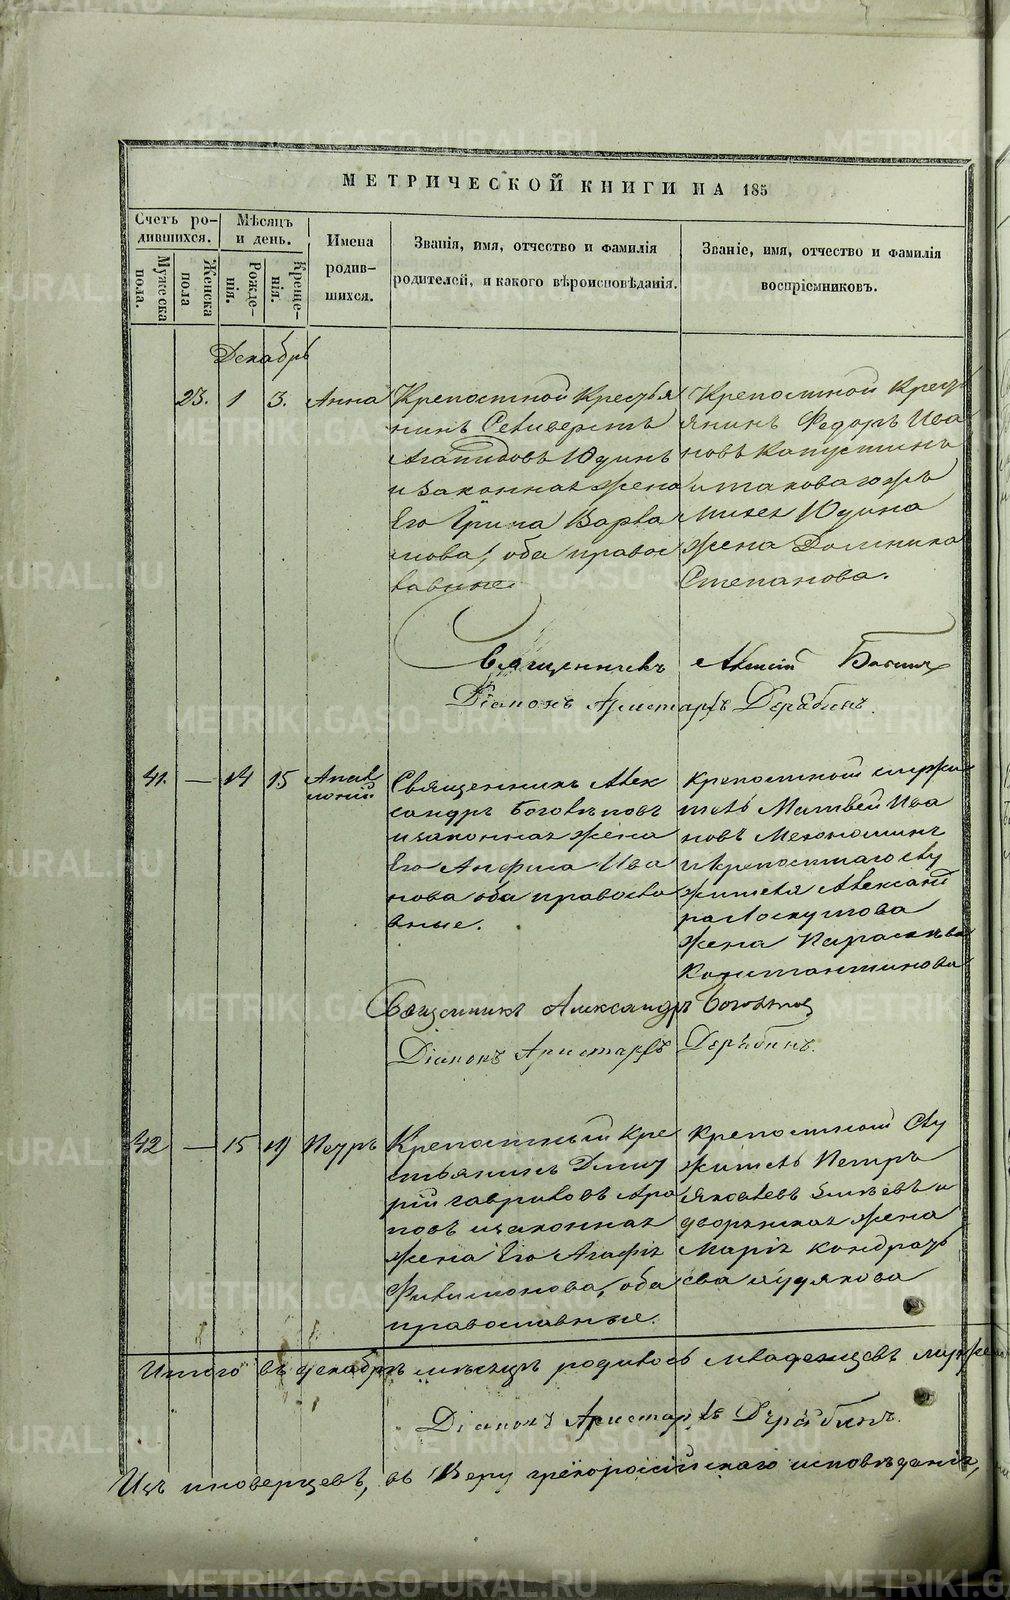 МЕТРИЧЕСКОЙ КНИГИ НА 185
Счетъ родившихся.
Мужеска пола.
Женска пола
Мѣсяцъ и день.
Рожденія.
Крещенія.
Имена родившихся.
Званія, имя, отчество и фамилія
родителей, и какого вѣроисповѣданія.
Званіе, имя, отчество и фамилія
воспріемниковъ.
Декабрь
23. 1 3. Анна
Крепостной Крестья
нинъ Селиверстъ
Агапидовъ Юдинъ
и законная жена
Его Ирина Варла
мова, оба правос
лавные.
Крепостной Крест
янинъ Федоръ Ива
новъ Капустинъ
и таковагожъ
Юдина
жена Домника
Степанова.
Священникъ Алексій
Діаконъ Аристархъ Дерябинъ.
41. — 14 15 Апол
лоній
Священникъ Алек
сандръ Боголѣповъ
и законная жена
Его Анфиса Ива
нова оба правосла
вные.
Крепостной служи
тель Матвей Ива
новъ
и крепостнаго слу
жителя Александ
ра Лоскутова
жена Парасковья
Константинова
Священникъ Александръ Боголѣповъ
Діаконъ Аристархъ Дерябинъ.
42 — 15 19 Петръ
Крепостный Кре
стьянинъ Димит
рій Гавриловъ Ара
повъ и законная
жена Его Агафія
Филимонова, оба
православные.
Крепостной Слу
житель Петръ
Яковлевъ и
дворянская жена
Марія Кондрать
ева Худякова
Итого въ декабрѣ мѣсяцѣ родилось младенцевъ
Діаконъ Аристархъ Дерябинъ.
Изъ иноверцевъ, въ Веру грекороссійскаго исповѣданія,
METRIKI.GASO-URAL.RU